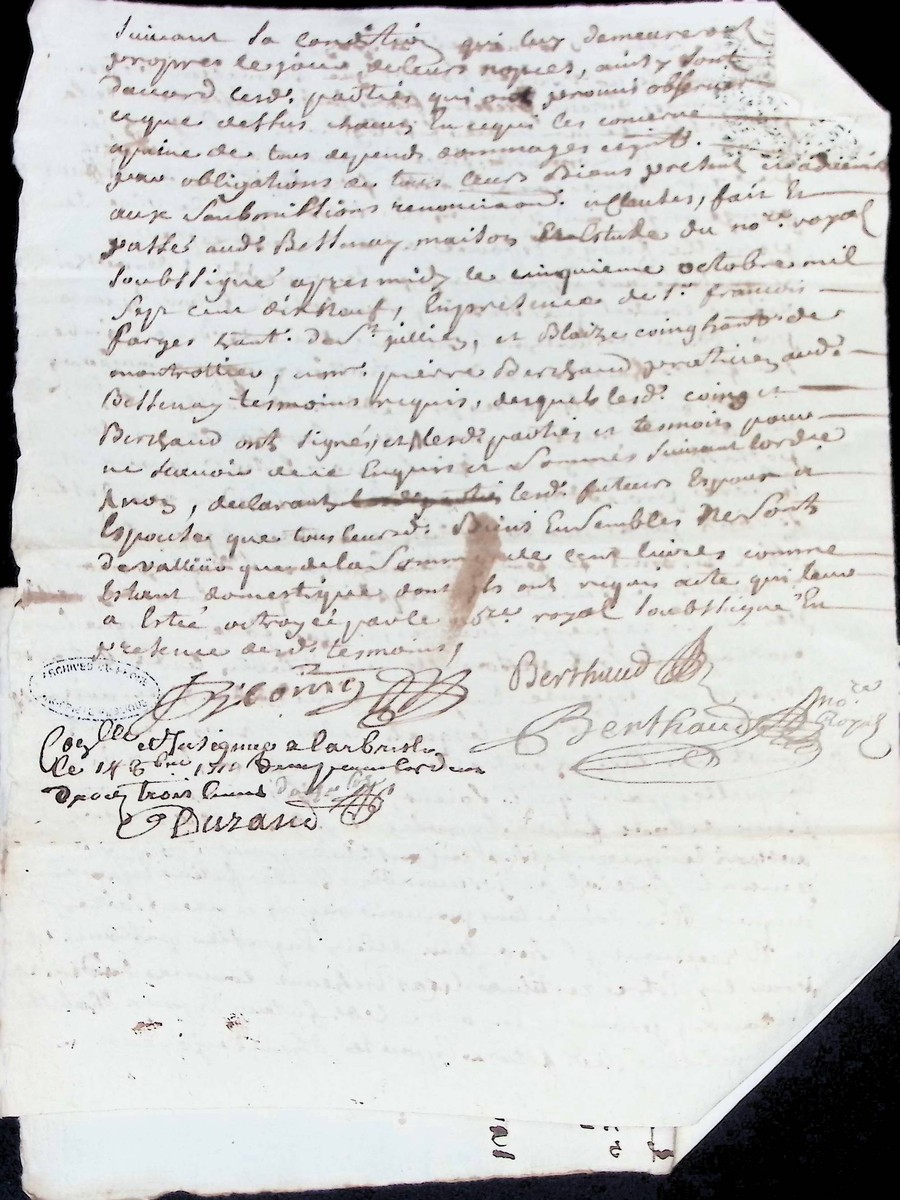 suivant sa condition qui luy demeureront
propres le jour de leurs nopces, ainsy sont
daccord lesd. parties qui ont promis observer
ce que dessus chacun en ce qui les concerne
a paine de tous depends dommages
par obligations de tous leurs Biens present
aux soubmissions renonciaon. et clauses, fait Et
passé aud. Bessenay maison Et Estude du nore. royal
soubssigné apres midy le cinquieme octobre mil
sept cent dix Neuf, En presence de sr. francois
farges hant. de St. jullien, et Blaize coing hant. de
montrottier, et mre. pierre Berthaud praticien aud.
Bessenay tesmoins requis, desquels lesd. coing et
Berthaud ont signés, et Non lesd. parties et tesmoins pour
ne scavoir de ce Enquis et sommés suivant lordre
lesd. futeurs Espoux et
Espouse que tous leursd. Biens Ensembles Ne sont
de valleur que de la somme de cent livres comme
Estant domestique dont ils ont requis acte qui leur
a Esté octroyée par le nore. royal soubssigné En
presence desd. tesmoins,
B coing
Berthaud
Berthaud nore. Royal
ARCHIVES
Coellé et Insignué a larbresle
le 14 8bre 1719
trois livres
Durand